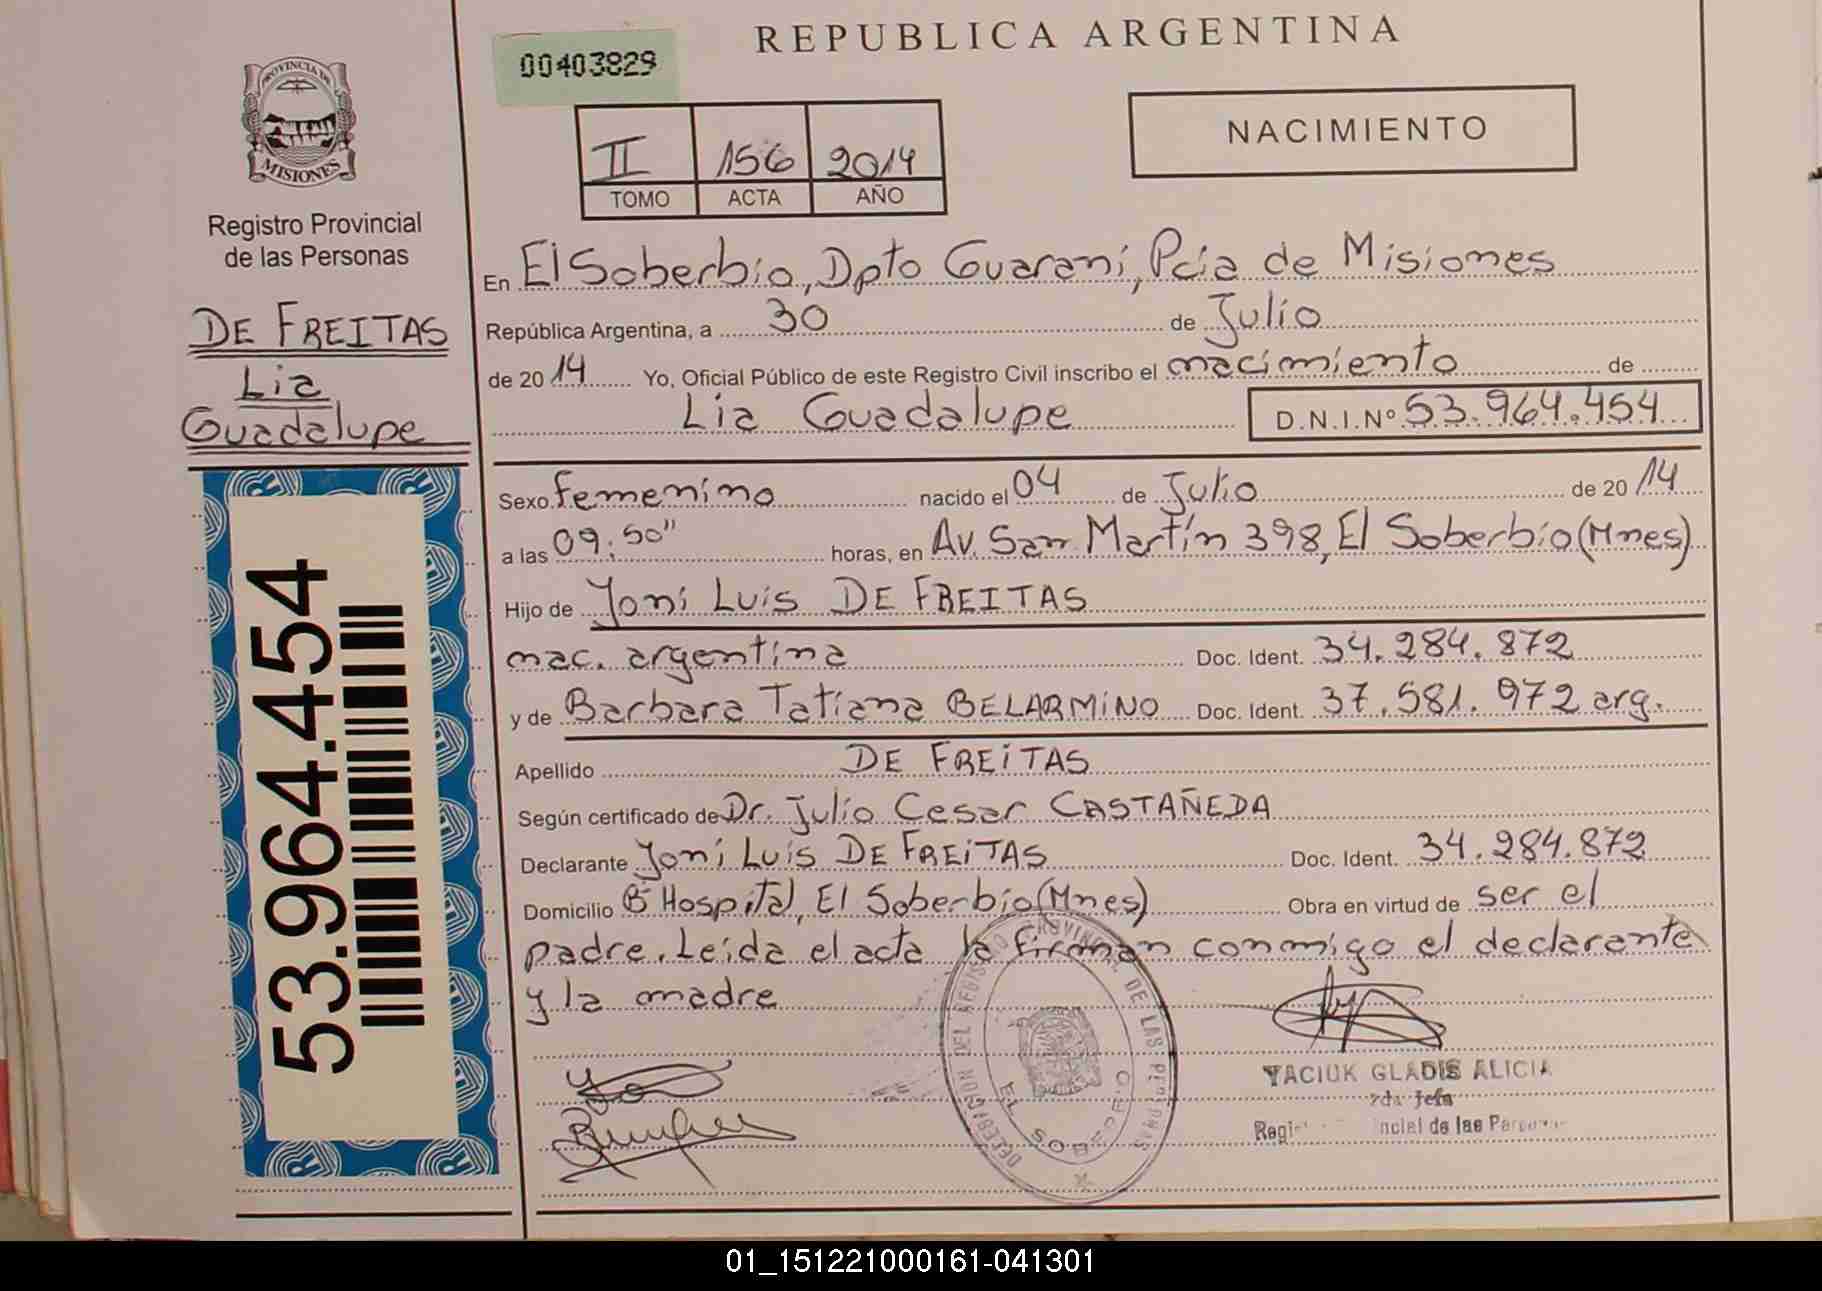 REPUBLICA ARGENTINA
00403829
NACIMIENTO
II 156 2014
TOMO ACTA AÑO
PROVINCIA DE
MISIONES
Registro Provincial
de las Personas
DE FREITAS
Lia
Guadalupe
53.964.454
En El Soberbio, Dpto Guaraní, Pcia de Misiones
República Argentina, a 30 de Julio
de 20 14 Yo, Oficial Público de este Registro Civil inscribo el nacimiento de
Lia Guadalupe D.N.I.Nº 53.964.454
Sexo femenino nacido el 04 de Julio de 20 14
a las 09:50" horas, en Av. San Martín 398, El Soberbio (Mnes)
Hijo de Yoni Luis DE FREITAS
nac. argentina Doc. Ident. 34.284.872
y de Barbara Tatiana BELARMINO Doc. Ident. 37.581.972 arg.
Apellido DE FREITAS
Según certificado de Dr. Julio Cesar CASTAÑEDA
Declarante Yoni Luis DE FREITAS Doc. Ident. 34.284.872
Domicilio Bº Hospital, El Soberbio (Mnes) Obra en virtud de ser el
padre. Leída el acta la firman conmigo el declarante
y la madre
DELEGACION DEL REGISTRO PROVINCIAL DE LAS PERSONAS
EL SOBERBIO
YACIUK GLADIS ALICIA
2da Jefa
de las
01_151221000161-041301